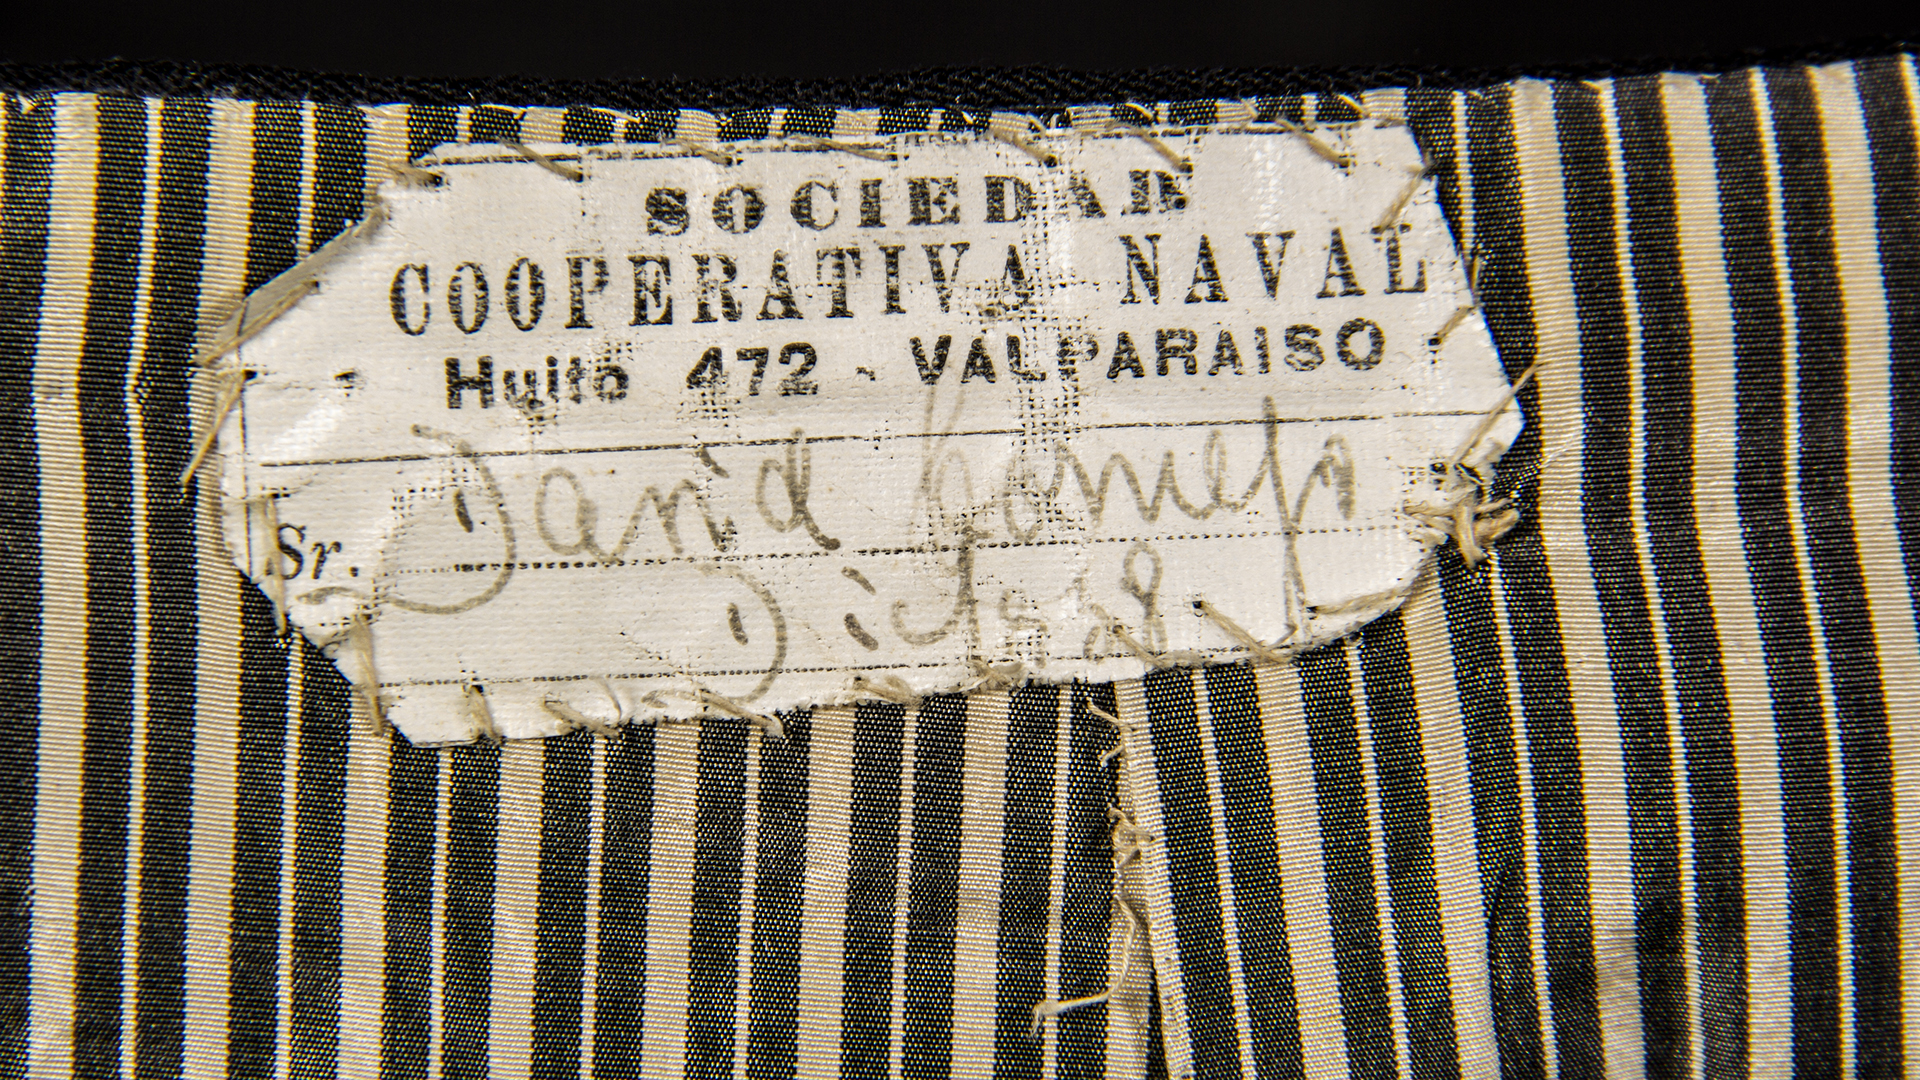 SOCIEDAD
COOPERATIVA NAVAL
Huito 472 - VALPARAISO
Sr. David
Dic